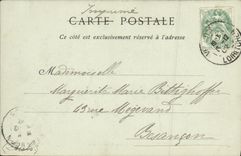 Imprimé
CARTE POSTALE
Ce côté est exclusivement réservé à l'adresse
Mademoiselle
Marguerite Marie
43 rue Mégevand
Besançon